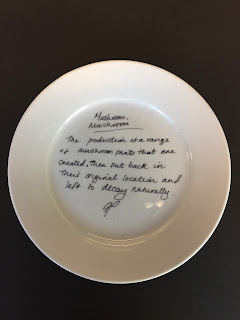 Mushroom,
Mushroom
The production of a range
of mushroom prints that are
created, then put back in
their original location and
left to decay naturally.